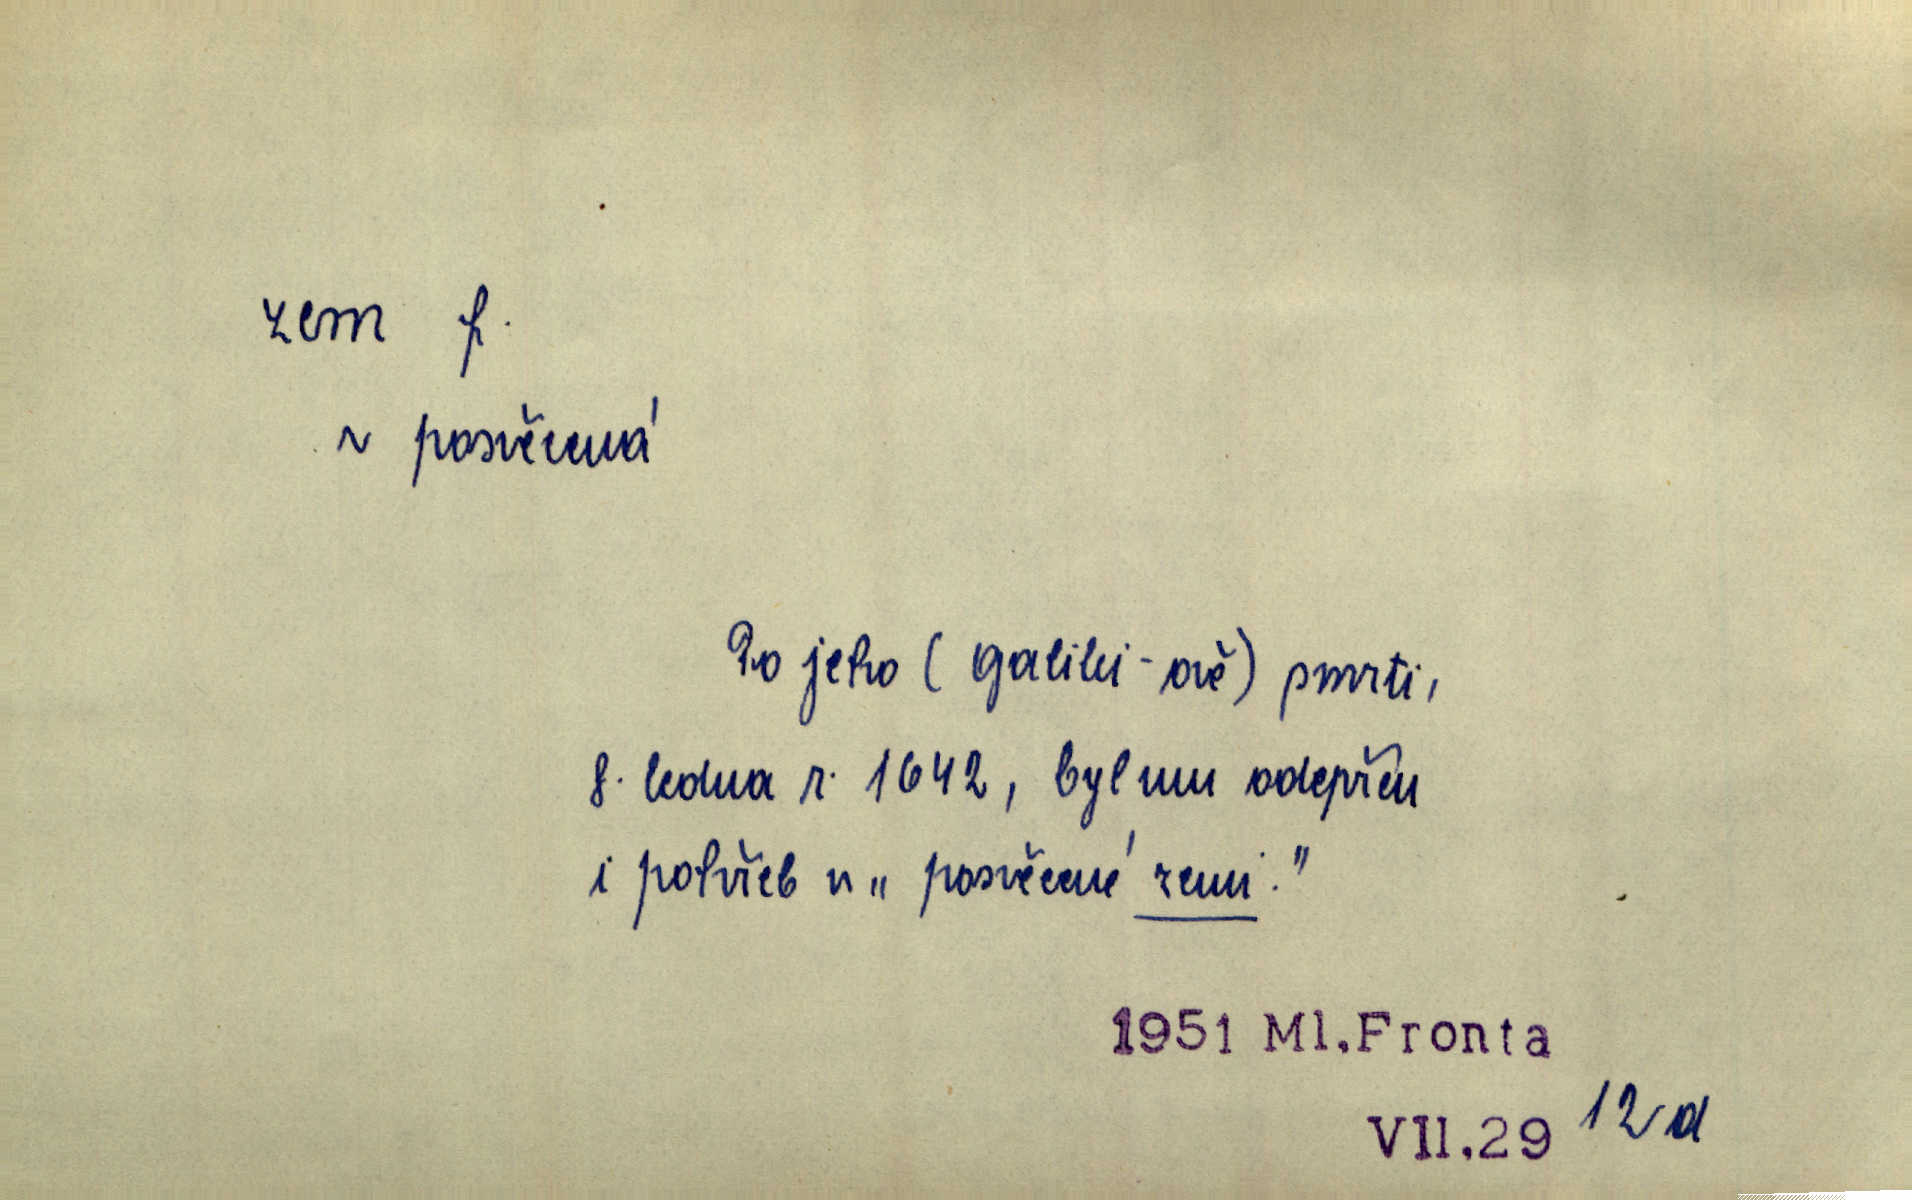 zem f.
~ posvěcená
Po jeho (Galilei-ově) smrti,
8. ledna r. 1642, byl mu odepřen
i pohřeb v „posvěcené zemi."
1951 Ml.Fronta
VII.29 12d